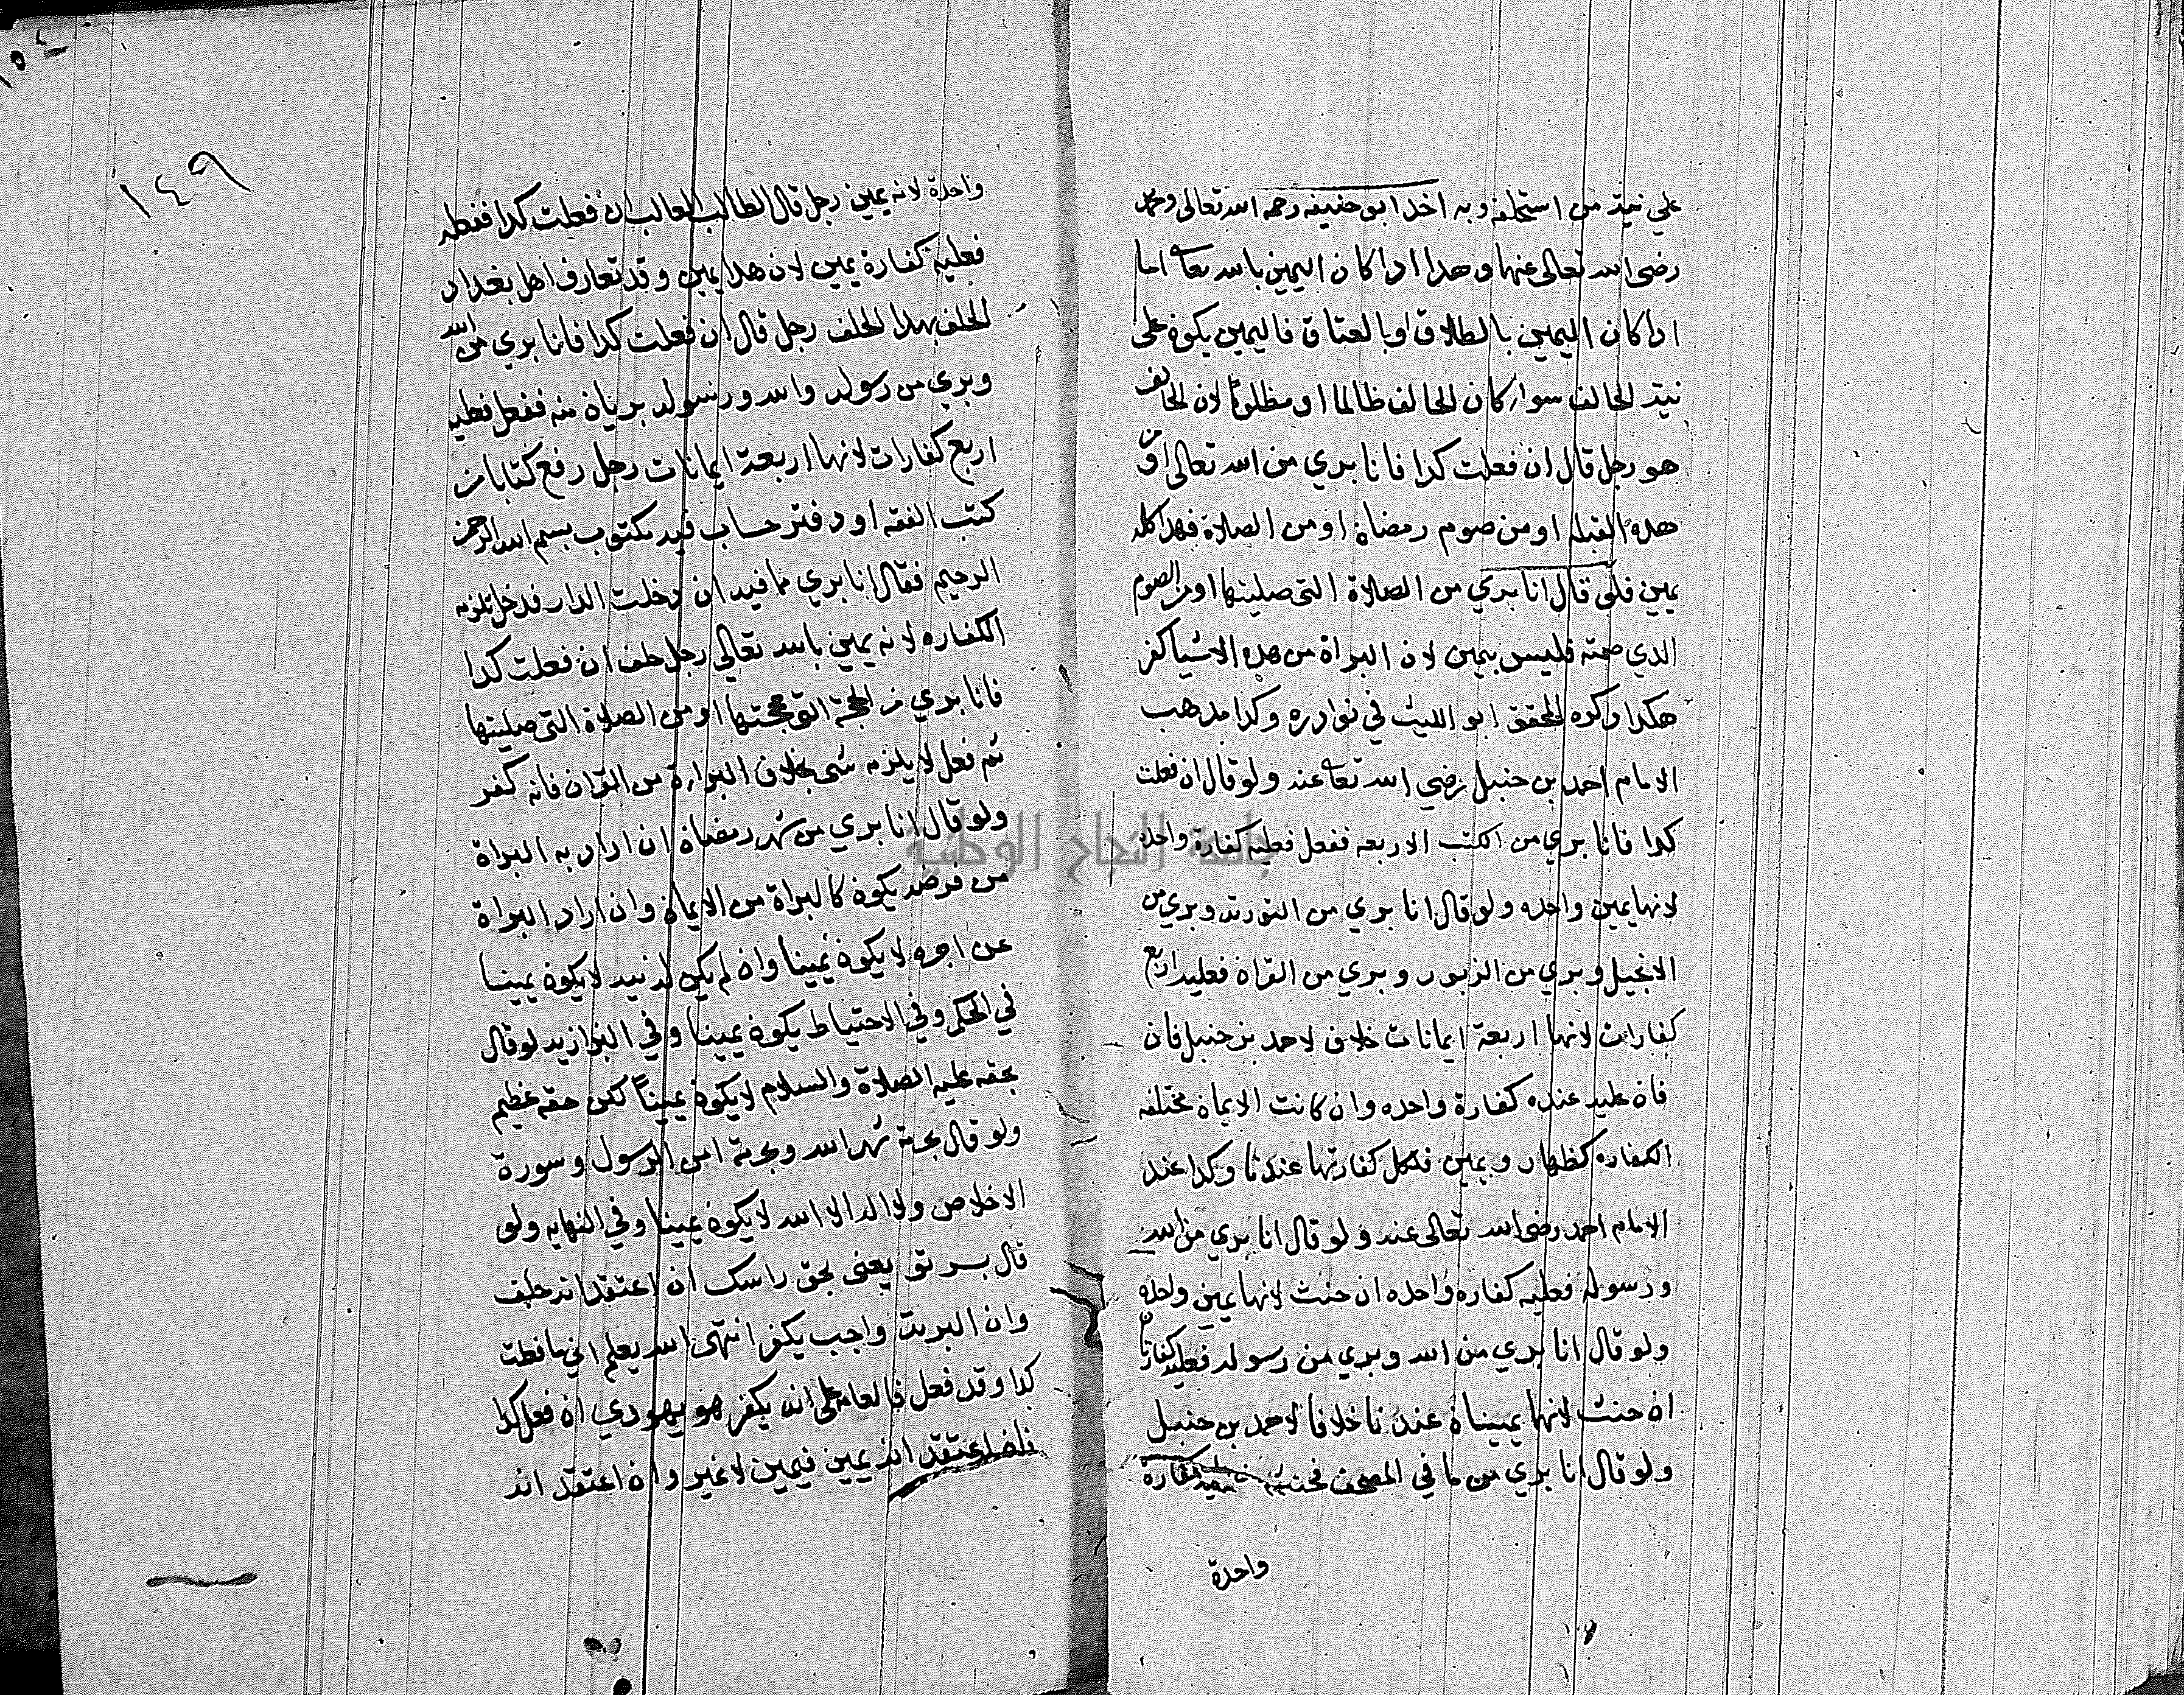 علي نية من استحلفه وبه اخد ابو حنيفه رحمه الله تعالى ومحمد
رضى الله تعالى عنهما وهدا ادا كان اليمين بالله تعا اما
ادا كان اليمين بالطلاق او بالعتاق فاليمين يكون على
نية الحالف سواء كان الحالف ظالما او مظلوما لان الحالف
هو رجل قال ان فعلت كدا فانا بري من الله تعالى او من
هده القبله او من صوم رمضان او من الصلاة فهدا كله
يمين فلو قال انا بري من الصلاة التى صليتها او من الصوم
الدي صمته فليس بيمين لان البراة من هده الاشيا كفر
هكدا دكره المحقق ابو الليث في نوادره وكدا مدهب
الامام احمد بن حنبل رضي الله تعا عنه ولو قال ان فعلت
كدا فانا بري من الكتب الاربعه ففعل فعليه كفارة واحده
لانها يمين واحده ولو قال انا بري من التورته وبري من
الانجيل وبري من الزبور وبري من القران فعليه اربع
كفارات لانها اربعة ايمانات خلاف لاحمد بن حنبل فان
فان عليه عنده كفارة واحده وان كانت الايمان مختلفه
الكفاره كظهار ويمين فلكل كفارتها عندنا وكدا عند
الامام احمد رضى الله تعالى عنه ولو قال انا بري من الله
ورسوله فعليه كفاره واحده ان حنث لانها يمين واحده
ولو قال انا بري من الله وبري من رسوله فعليه كفارتان
ان حنث لانها يمينان عندنا خلافا لاحمد بن حنبل
ولو قال انا بري من ما في المصحف فحنث فعليه كفارة
واحدة
١٥٤
١٤٩
واحدة لانه يمين رجل قال الطالب الغالب ان فعلت كدا ففعله
فعليه كفارة يمين لان هدا يمين وقد تعارف اهل بغداد
الحلف بهدا الحلف رجل قال ان فعلت كدا فانا بري من الله
وبري من رسوله والله ورسوله بريان منه ففعل فعليه
اربع كفارات لانها اربعة ايمانات رجل رفع كتابا من
كتب الفقه او دفتر حساب فيه مكتوب بسم الله الرحمن
الرحيم فقال انا بري مما فيه ان دخلت الدار فدخل تلزمه
الكفاره لانه يمين بالله تعالي رجل حلف ان فعلت كدا
فانا بري من الحجة التى حججتها او من الصلاة التى صليتها
ثم فعل لا يلزمه شى بخلاف البراءة من القران فانه كفر
ولو قال انا بري من شهر رمضان ان اراد به البراة
من فرضه يكون كالبراة من الايمان وان اراد البراة
عن اجره لا يكون يمينا وان لم يكن له نيه لا يكون يمينا
في الحكم وفي الاحتياط يكون يمينا وفي البزازيه لو قال
بحقه عليه الصلاة والسلام لا يكون يمينا لكن حقه عظيم
ولو قال بحرمة شهد الله وبحرمة امن الرسول وسورة
الاخلاص ولا اله الا الله لا يكون يمينا وفي النهايه ولو
قال يعنى بحق راسك ان اعتقد انه حلف
وان البر به واجب يكفر انتهى الله يعلم اني ما فعلت
كدا وقد فعل فالعامة على انه يكفر هو يهودي ان فعل كدا
فان اعتقد انه يمين فيمين لا غير وان اعتقد انه
جامعة النجاح الوطنية